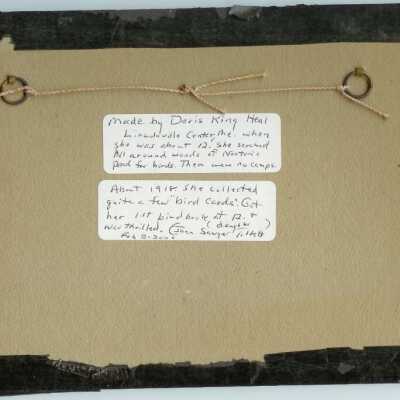 Made by Doris King Heal
Lincolnville Center, Me. when
she was about 12. She searched
All around woods of Norton's
Pond for birds. There were no camps.
About 1918 she collected
quite a few "bird cards". Got
her 1st bird book at 12 &
was thrilled. (daughter)
Joan Sawyer
Feb 2-2000